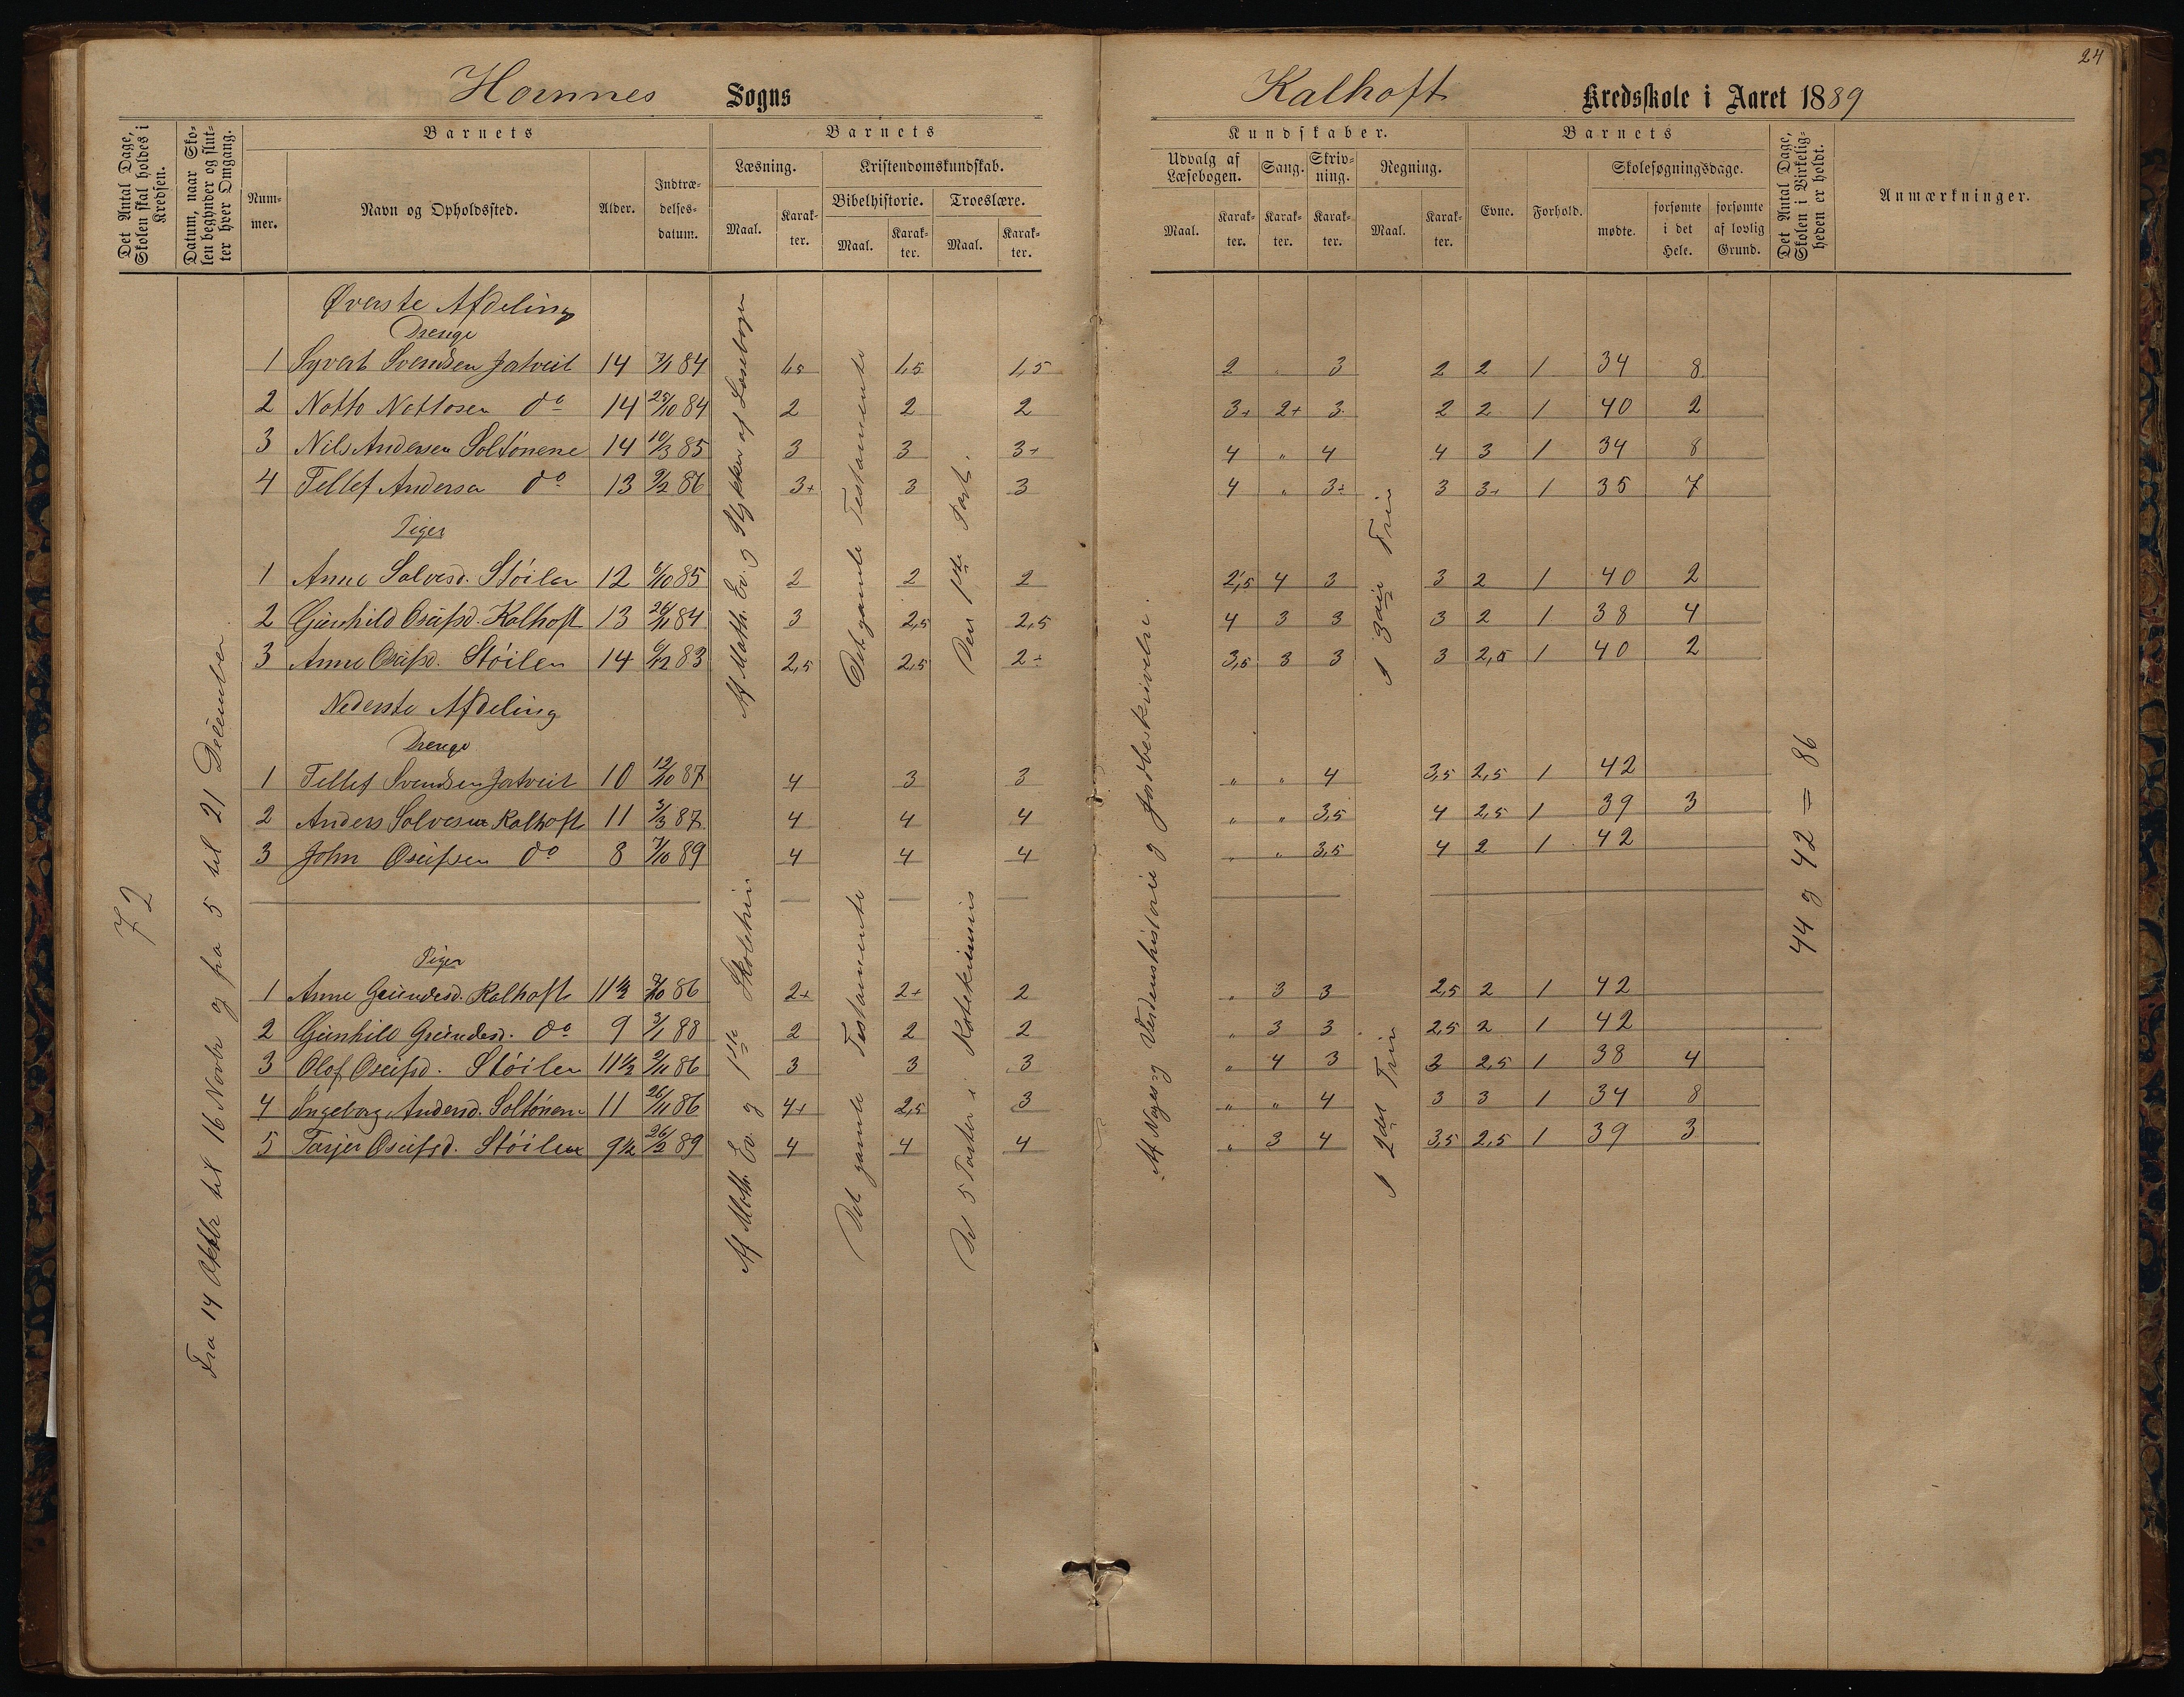 24
Hornnes Sogns
Kalhoft Kredsskole i Aaret 1889
Det Antal Dage, Skolen skal holdes i Kredsen.
Datum, naar Skolen begynder og slutter hver Omgang.
Barnets
Nummer.
Navn og Opholdssted.
Alder.
Indtrædelsesdatum.
Barnets
Læsning.
Maal.
Karakter.
Kristendomskundskab.
Bibelhistorie.
Maal.
Karakter.
Troeslære.
Maal.
Karakter.
Kundskaber.
Udvalg af Læsebogen.
Maal.
Karakter.
Sang.
Karakter.
Skrivning.
Karakter.
Regning.
Maal.
Karakter.
Barnets
Evne.
Forhold.
Skolesøgningsdage.
mødte.
forsømte i det Hele.
forsømte af lovlig Grund.
Det Antal Dage, Skolen i Virkeligheden er holdt.
Anmærkninger.
72
Fra 14 Oktbr til 16 Novbr og fra 5 til 21 December
Øverste Afdeling
Drenge
1 Syvert Svendsen Jatveit 14 7/1 84 1,5 1,5 1,5 2 " 3 2 2 1 34 8
2 Notto Nottosen do 14 25/10 84 2 2 2 3+ 2+ 3 2 2 1 40 2
3 Nils Andersen Soltónene 14 10/3 85 3 3 3+ 4 " 4 4 3 1 34 8
4 Tellef Andersen do 13 9/2 86 3+ 3 3 4 " 3+ 3 3+ 1 35 7
Piger
1 Anne Salvesd. Stóilen 12 6/10 85 2 2 2 2,5 4 3 3 2 1 40 2
2 Gunhild Osufsd. Kalhoft 13 26/11 84 3 2,5 2,5 4 3 3 3 2 1 38 4
3 Anne Osufsd. Stóilen 14 6/12 83 2,5 2,5 2÷ 3,5 3 3 3 2,5 1 40 2
Af Math. Ev. og Stykker af Læsebogen
Det gamle Testamente
Den 1ste Part.
I 3die Trin
Nederste Afdeling
Drenge
1 Tellef Svendsen Jatveit 10 12/10 87 4 3 3 " " 4 3,5 2,5 1 42
2 Anders Salvesen Kalhoft 11 3/3 87 4 4 4 " " 3,5 4 2,5 1 39 3
3 John Osufsen do 8 7/10 89 4 4 4 " " 3,5 4 2 1 42
Piger
1 Anne Gundesd. Kalhoft 11½ 7/10 86 2+ 2+ 2 " 3 3 2,5 2 1 42
2 Gunhild Gundesd. do 9 3/1 88 2 2 2 " 3 3 2,5 2 1 42
3 Olaf Osufsd. Stóilen 11½ 2/11 86 3 3 3 " 4 3 3 2,5 1 38 4
4 Ingeborg Andersd. Soltónene 11 26/11 86 4+ 2,5 3 " " 4 3 3 1 34 8
5 Tarjer Osufsd. Stóilen 9½ 26/2 89 4 4 4 " 3 4 3,5 2,5 1 39 3
Af Math. Ev. og 1ste Skoletrin
Det gamle Testamente
De 5 Parter i Katekismus
Af Norges og Verdenshistorie og Jordbeskrivelse.
I 2det Trin
44 og 42 = 86